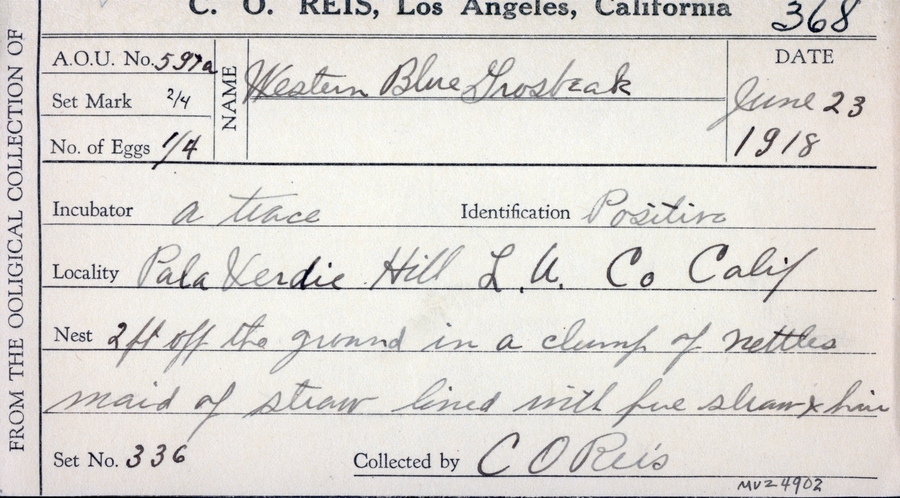 C. O. REIS, Los Angeles, California 368
FROM THE OOLIGICAL COLLECTION OF
A.O.U. No. 597a
Set Mark 2/4
No. of Eggs 1/4
NAME Western Blue Grosbeak
DATE
June 23
1918
Incubator a trace Identification Positive
Locality Pala Verdie Hill L.A. Co Calif
Nest 2ft off the ground in a clump of nettles
maid of straw lined with fine straw & hair
Set No. 336 Collected by C O Reis
MVZ 4902